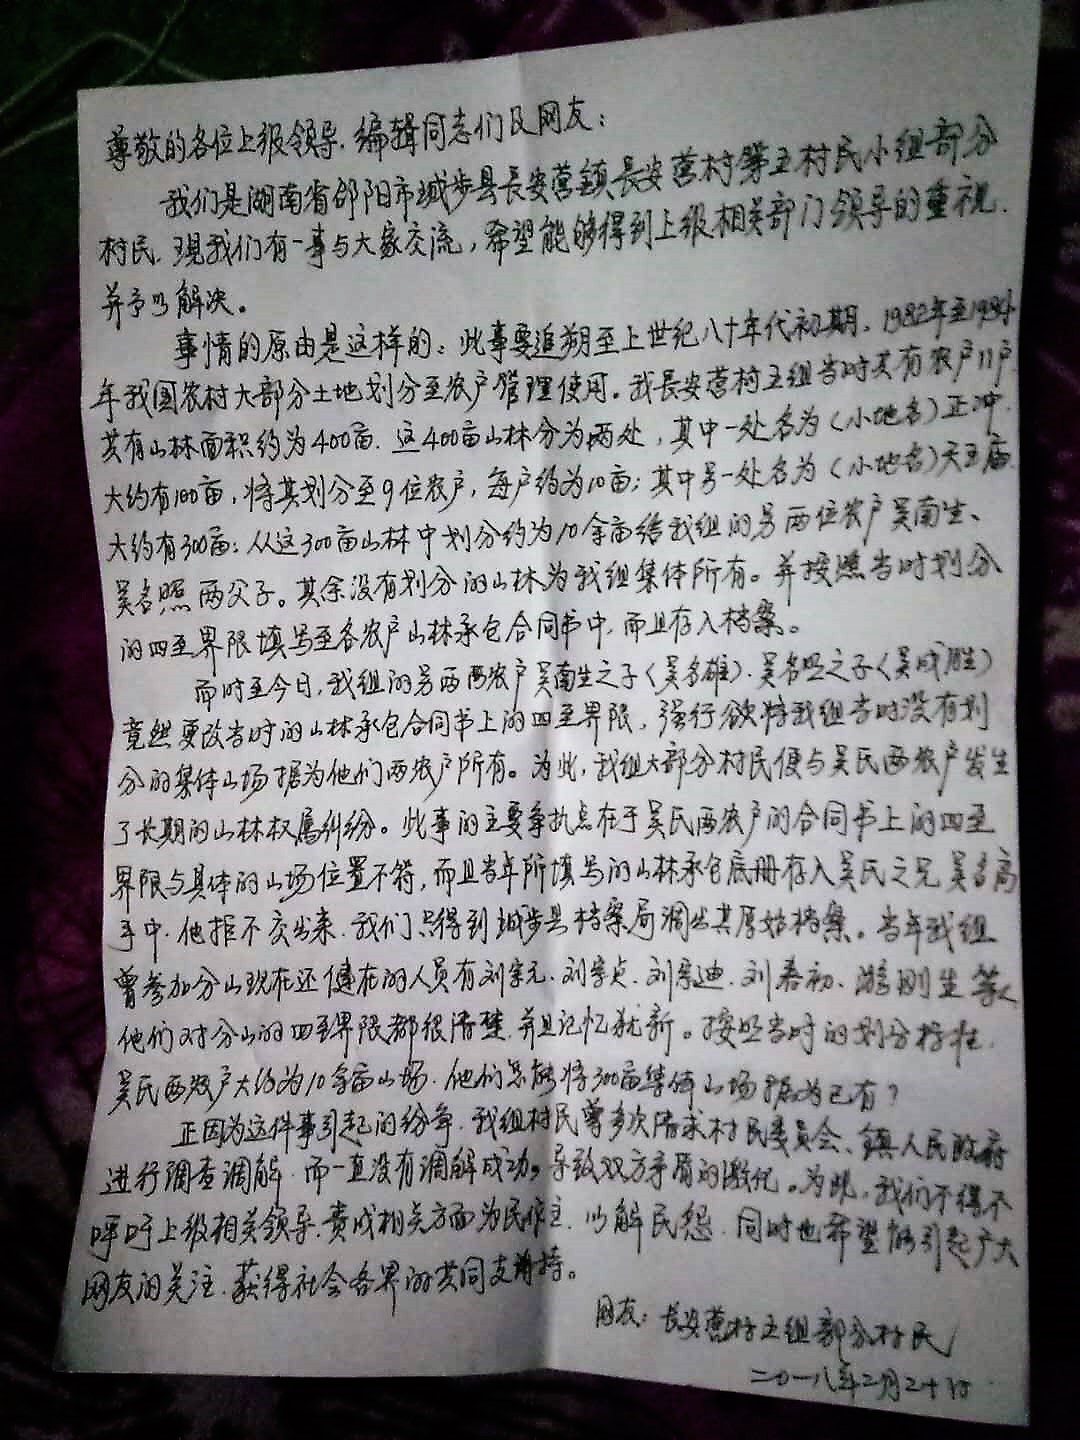 尊敬的各位上级领导、编辑同志们及网友：
我们是湖南省邵阳市城步县长安营镇长安营村第五村民小组部分
村民、现我们有一事与大家交流，希望能够得到上级相关部门领导的重视、
并予以解决。
事情的原由是这样的：此事要追朔至上世纪八十年代初期，1982年至1984
年我国农村大部分土地划分至农户管理使用。我长安营村五组当时共有农户11户
共有山林面积约为400亩、这400亩山林分为两处，其中一处名为（小地名）正冲、
大约有100亩，将其划分至9位农户，每户约为10亩；其中另一处名为（小地名）天王庙
大约有300亩；从这300亩山林中划分约为10余亩给我组的另两位农户吴南生、
吴名照两父子。其余没有划分的山林为我组集体所有。并按照当时划分
的四至界限填写至各农户山林承包合同书中，而且存入档案。
而时至今日，我组的另两农户吴南生之子（吴名雄）、吴名照之子（吴成胜）
竟然更改当时的山林承包合同书上的四至界限，强行欲将我组当时没有划
分的集体山场据为他们两农户所有。为此，我组大部分村民便与吴氏两农户发生
了长期的山林权属纠纷。此事的主要争执点在于吴氏两农户的合同书上的四至
界限与具体的山场位置不符，而且当年所填写的山林承包底册存入吴氏之兄吴名高
手中、他拒不交出来、我们只得到城步县档案局调出其原始档案。当年我组
曾参加分山现在还健在的人员有刘宗元、刘宗贞、刘宗迪、刘春初、刚生等人
他们对分山的四至界限都很清楚、并且记忆犹新。按照当时的划分、
吴氏两农户大约为10余亩山场、他们怎能将300亩集体山场据为己有？
正因为这件事引起的纷争、我组村民曾多次请求村民委员会、镇人民政府
进行调查调解、而一直没有调解成功。导致双方矛盾的激化。为此，我们不得不
呼吁上级相关领导、责成相关方面为民作主、以解民怨、同时也希望能引起广大
网友的关注、获得社会各界的共同支持。
网友：长安营村五组部分村民
二〇一八年二月二十日